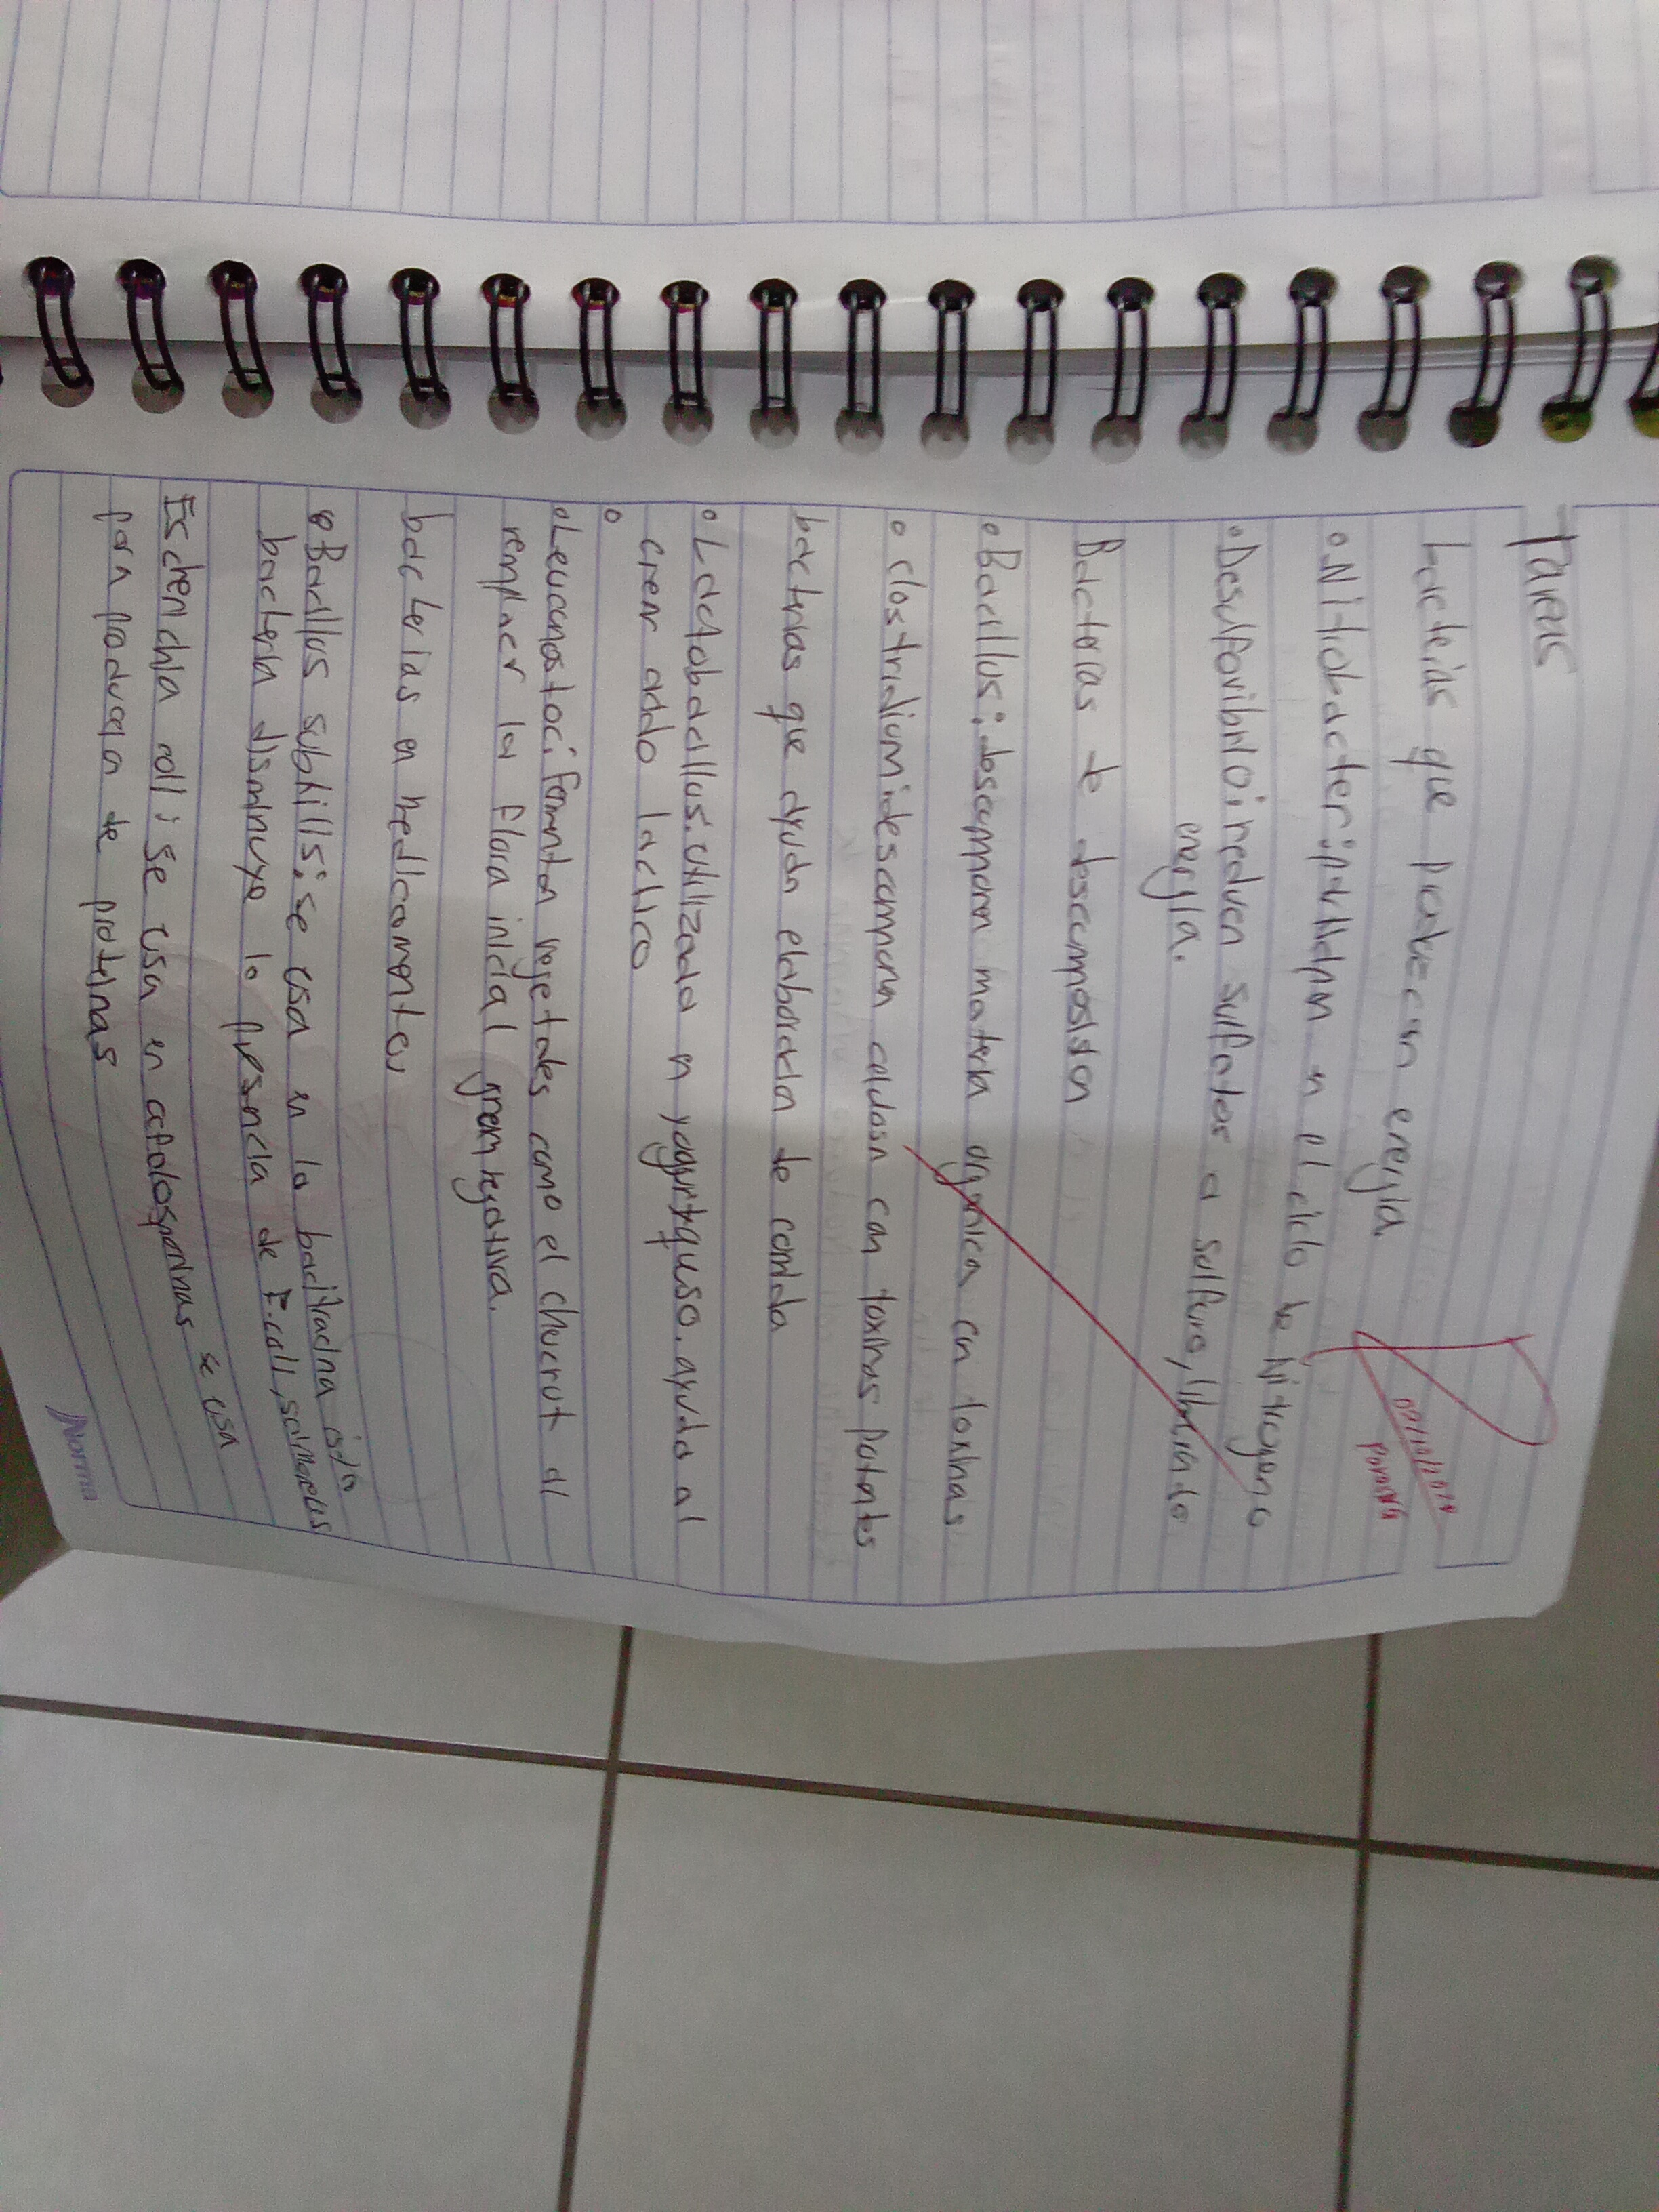 Tareas
bacterias que producen energia
Nitrobacter: participan en el ciclo de Nitrogeno
Desulfovibrio: reducen sulfatos a sulfuro, liberando
energia.
Bacterias de descomposicion
Bacillus: descomponen materia organica con toxinas
clostridium: descomponen con toxinas potentes
bacterias que ayudan elaboracion de comida
Lactobacillus: utilizado en yogurt y queso. ayuda al
crear acido lactico
Leuconostoc: fomentan vegetales como el chucrut al
la flora inicial gram negativa.
bacterias en medicamentos
Bacillus subtillis: se usa en la bacitracina
bacteria disminuye la presencia de E.coli,
Escherichia coli: se usa en se usa
para produccion de proteinas
Norma